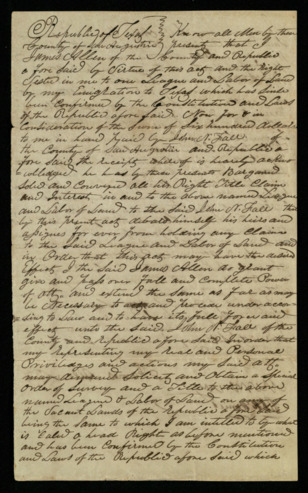 Republic of Texas Know all Men by these
County of San Augustine present that I
James Allen of the County and Republic
afore Said by Virtue of this act and the Right
in me to one League and Labor of Land
by my Emigration to Texas which has Since
been Confirmed by the Constitution and Laws
of the Republic afore Said for & in
Consideration of the Sum of hundred dollars
to me in hand paid by John N. Fall of
the County of San Augustine and Republic a
fore Said the receipt where of is hereby acknow
ledged he has by these presents Bargained
Sold and Conveyed all his Right Title Claim
and Interest in and to the above named League
and Labor of Land to the Said John N. Fall
by this present act his heirs and
assigns for ever from having any Claim
to the Said League and Labor of Land and
in Order that this act may have the desired
effect I the Said James Allen do grant
give and pass over full and Complete Power
of atty and extend the Same as far as may
be necessary to and to execute under accor
ding to Law and to have its full force and
effect unto the Said John N. Fall of the
County and republic afore Said in order that
my representing my real and Personal
Priviledges and actions my Said atty
may and Obtain a Special
Order of Survey and a Title to the above
name League & Labor of Land on
the Vacant Lands of the republic afore Said
being the Same to which I am entitled to by what
is Called a head Right as before mentioned
and has been Confirmed by the Constitution
and Laws of the Republic afore Said which